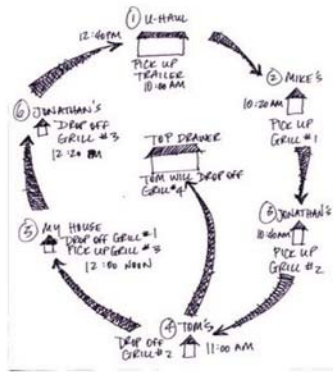 ① U-HAUL
PICK UP
TRAILER
10:00 AM
② MIKE'S
10:20 AM
PICK UP
GRILL #1
③ JONATHAN'S
PICK UP
GRILL #2
④ TOM'S
DROP OFF
GRILL #2
11:00 AM
TOP DRAWER
TOM WILL DROP OFF
GRILL #4
⑤ MY HOUSE
DROP OFF GRILL #1
PICK UP GRILL #3
12:00 NOON
⑥ JONATHAN'S
DROP OFF
GRILL #3
12:20 PM
12:40PM